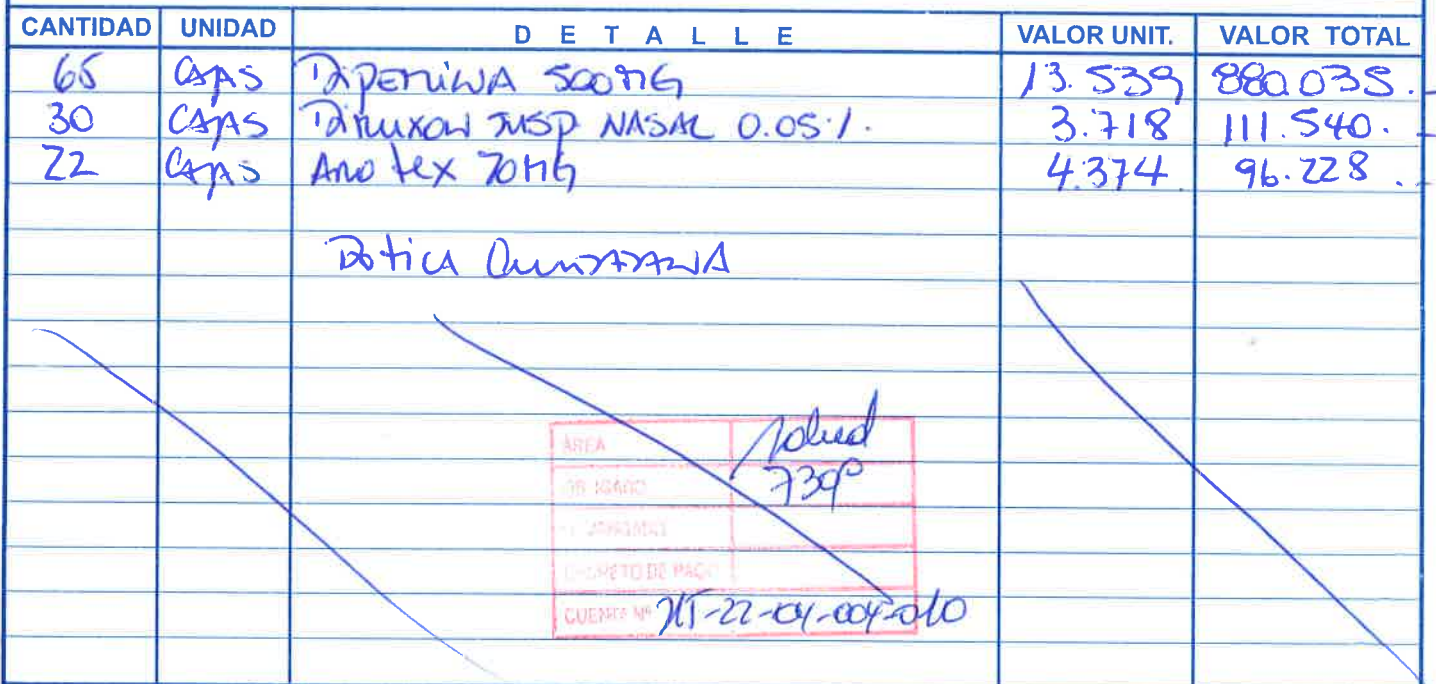 CANTIDAD UNIDAD DETALLE VALOR UNIT. VALOR TOTAL
65 CAJAS 500MG 13.539 880.035.
30 CAJAS SUSP NASAL 0.05%. 3.718 111.540.
22 CAJAS Anotex 70MG 4.374 96.228.
Botica
AREA Salud
OBLIGADO
DECRETO DE PAGO
CUENTA Nº 215-22-04-004-010